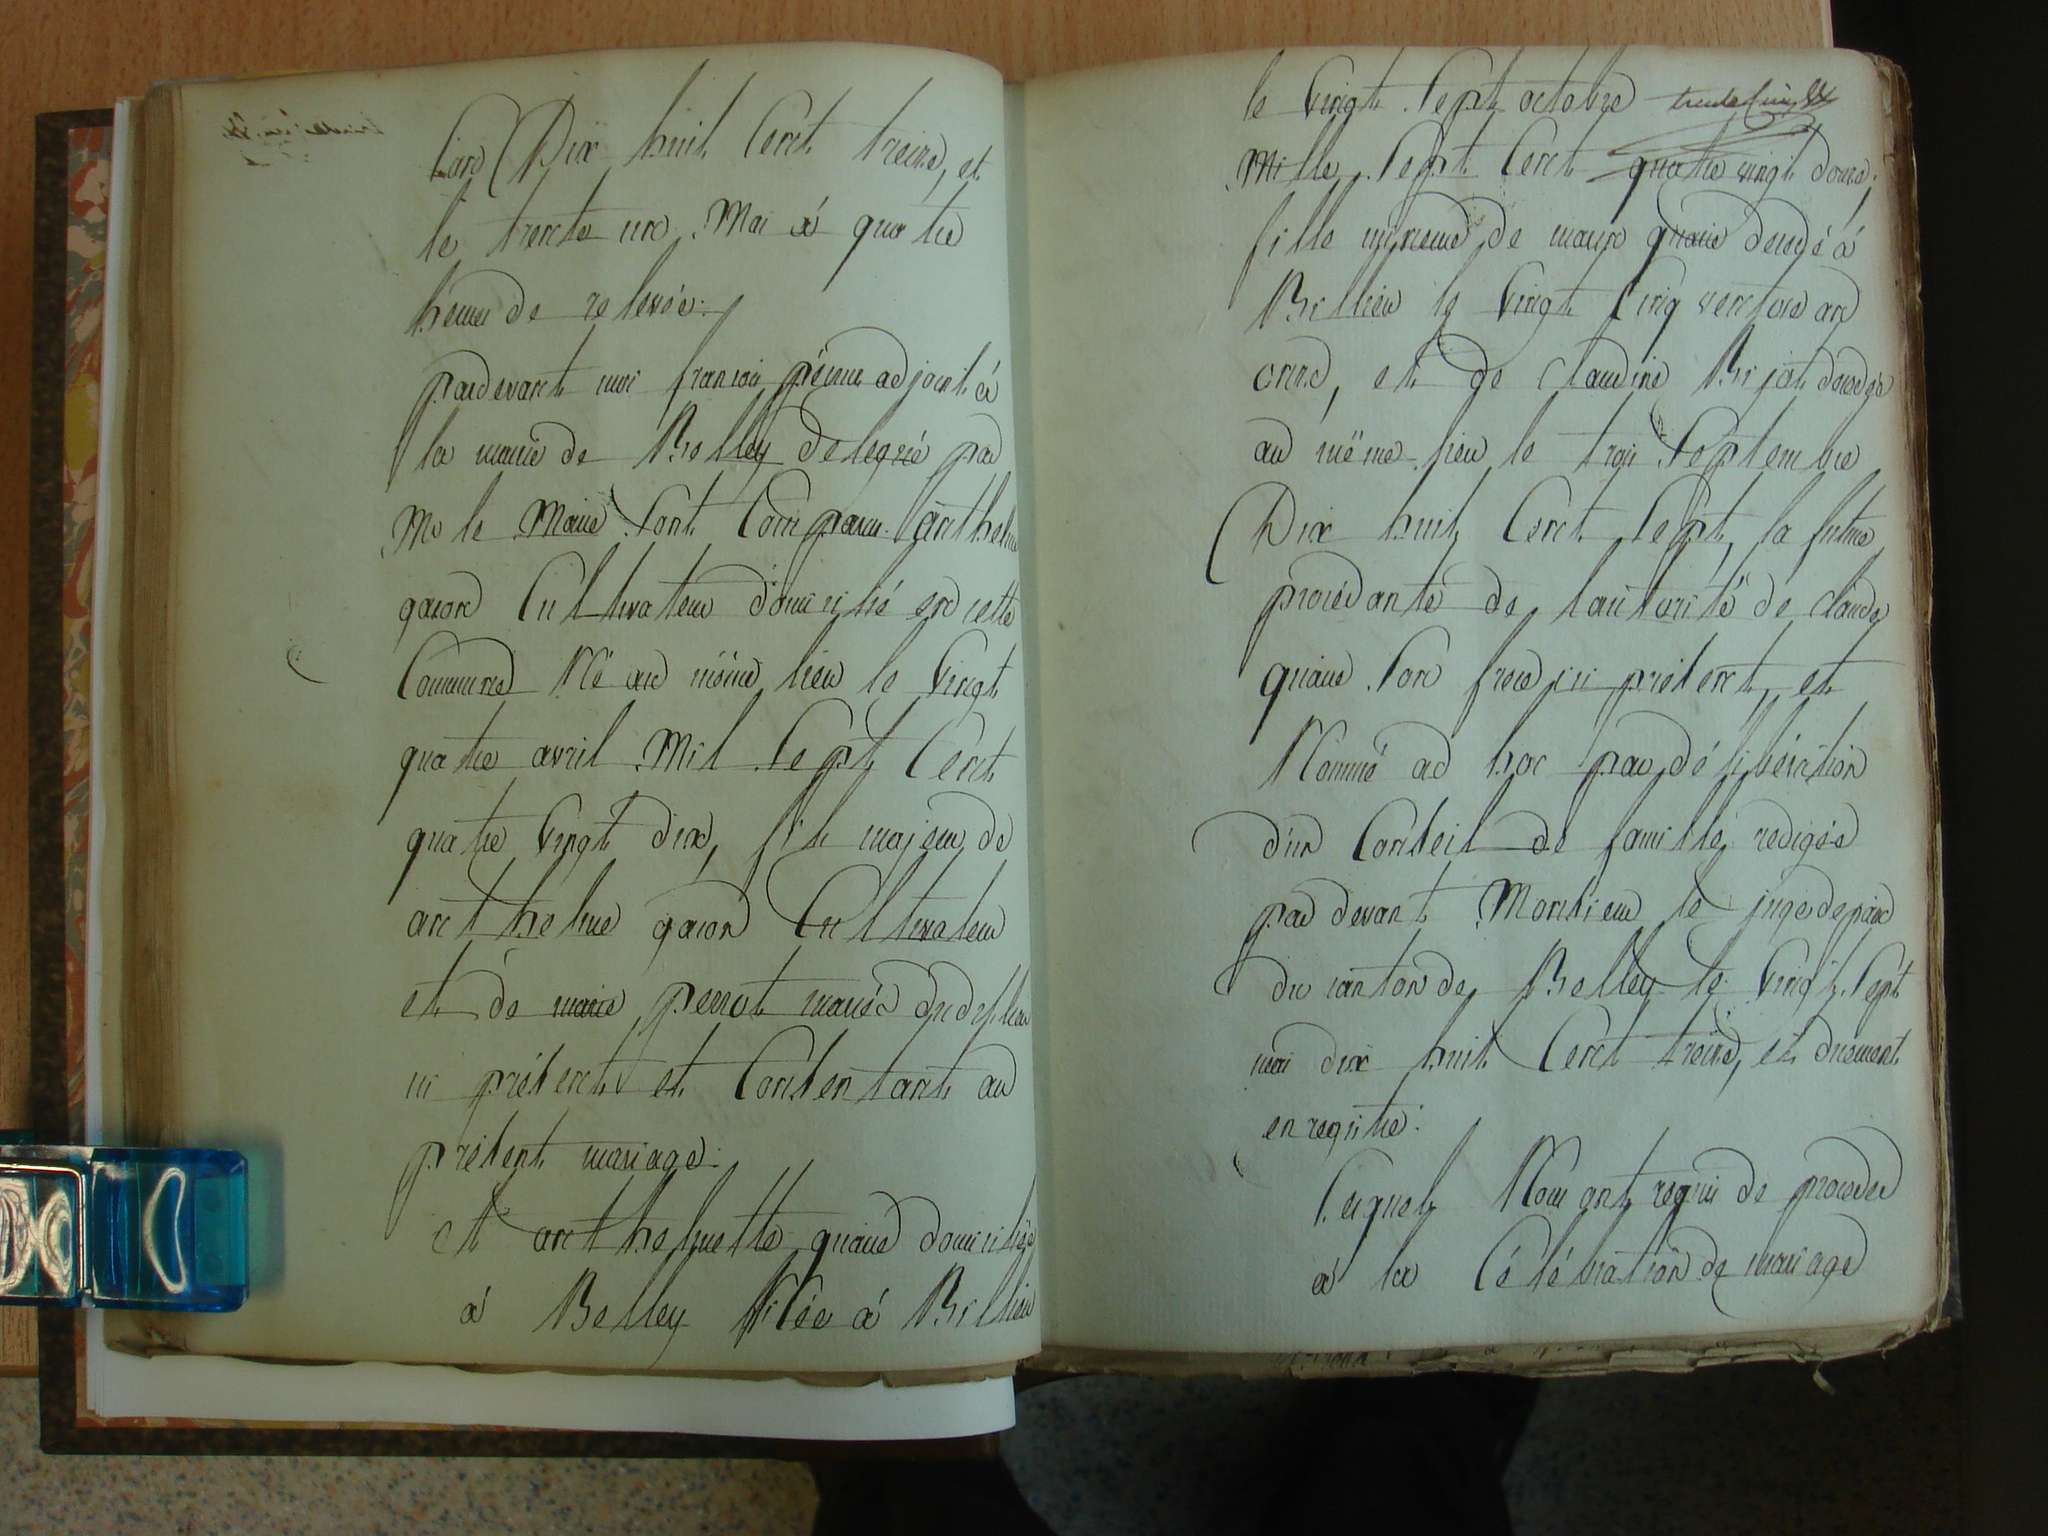 L'an Dix huit Cent treize, et
le trente un Mai à quatre
heures de relevée.
pardevant moi françois adjoint à
la mairie de Belley délégué par
Mr le Maire sont Comparus anthelme
gacon Cultivateur domicilié en cette
Commune Né au même lieu le vingt
quatre avril Mil Sept Cent
quatre vingt dix, fils majeur de
anthelme gacon Cultivateur
et de marie perrot mariés
ici présents et Consentants au
présent mariage.
et anthelmette quaue domiciliée
à Belley Née à Billieu
le vingt Sept octobre trente cinq
Mille Sept Cent quatre vingt douze,
fille mineure de quaue décédé à
Billieu le vingt Cinq ventose an
onze, et de claudine Bijot décédée
au même lieu le trois Septembre
Dix huit Cent Sept, la future
procédante de l'autorité de claude
quaue Son frère ici présent, et
Nommé ad hoc par délibération
d'un Conseil de famille rédigée
par devant Monsieur le juge de paix
du canton de Belley le vingt Sept
mai dix huit Cent treize, et duement
enregistré.
Lesquels Nous ont requis de procéder
à la Célébration de mariage